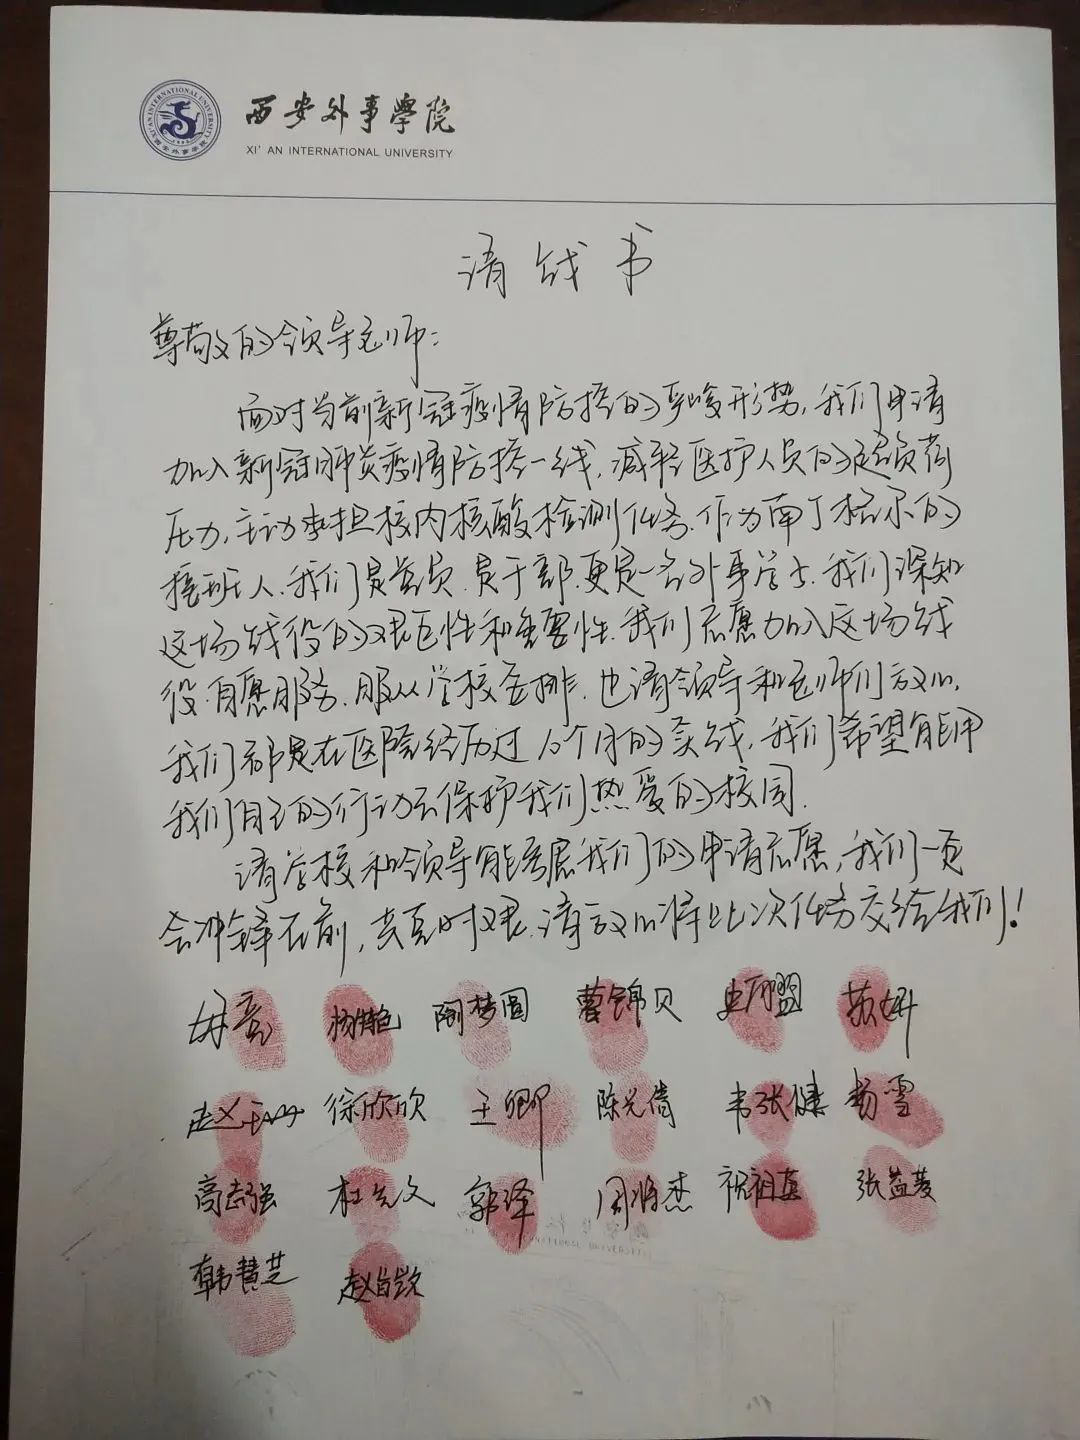 西安外事學院
XI' AN INTERNATIONAL UNIVERSITY
请战书
尊敬的领导老师:
面对当前新冠疫情防控的严峻形势,我们申请
加入新冠肺炎疫情防控一线,减轻医护人员的超负荷
压力,主动承担校内核酸检测任务.作为南丁格尔的
接班人.我们是党员.是干部.更是一名外事学子.我们深知
这场战役的艰巨性和重要性.我们志愿加入这场战
役.自愿服务.服从学校安排.也请领导和老师们放心.
我们都是在医院经历过10个月的实战,我们希望能用
我们自己的行动去保护我们热爱的校园.
请学校和领导能考虑我们的申请志愿,我们一定
会冲锋在前,共克时艰.请放心将此次任务交给我们!
胡亮 杨艳 陶梦圆 曹锦贝 史雨盟 苏妍
赵 徐欣欣 王卿 陈光倩 韦张健 杨雪
高志强 杜先文 郭泽 周将杰 祝祖直 张益菱
韩慧芝 赵自锐